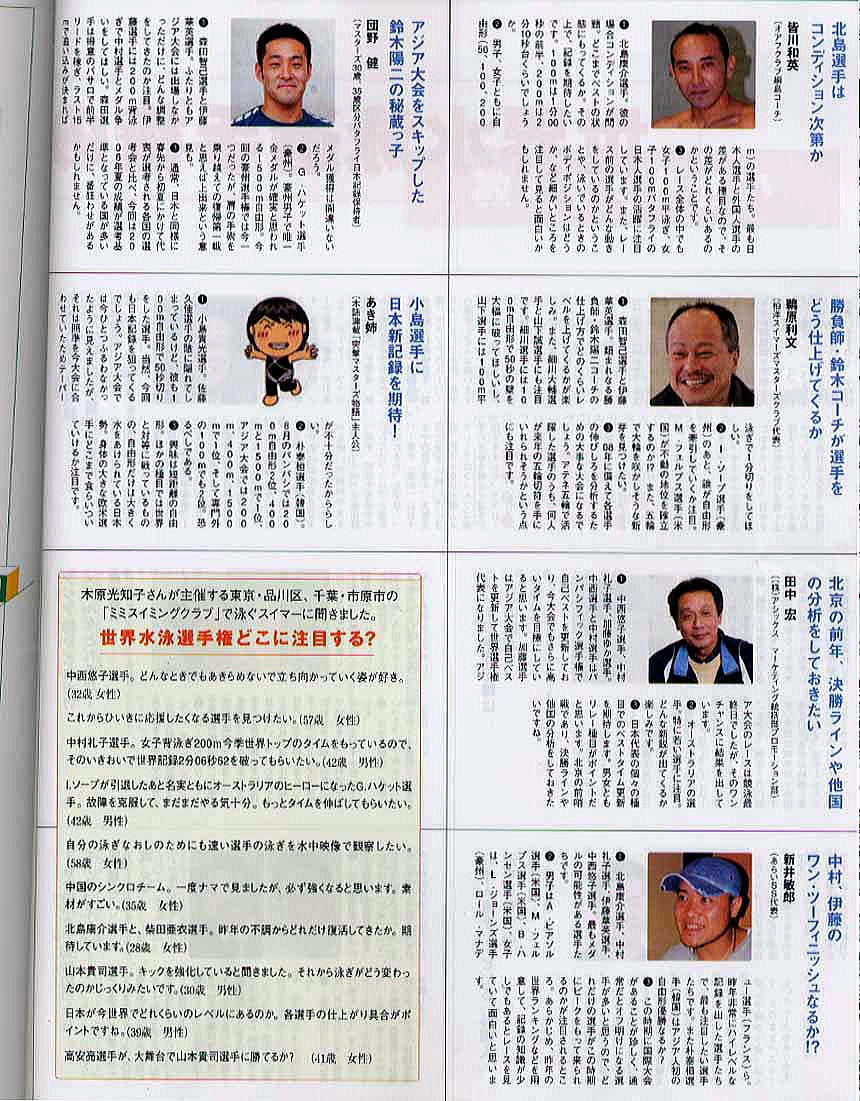 北島選手は
コンディション次第か
皆川和英
(オアフクラブ綱島コーチ)
❶ 北島康介選手。彼の
場合コンディションが問
題。どこまでベストの状
態にもってくるか。その
上で、記録を期待したい
です。100mは1分00
秒の前半、200mは2
分10秒台くらいでしょう
か。
❷ 男子、女子ともに自
由形(50、100、200
m)の選手たち。最も日
本人選手と外国人選手の
差がある種目なので、そ
の差がどれくらいあるの
かということです。
❸ レース全体の中でも
女子100m平泳ぎ、女
子100mバタフライの
日本人選手の活躍に注目
しています。また、レー
ス前の選手がどんな動き
をしているのかというこ
とや、泳いでいるときの
ボディポジションはどう
か、など細かいところを
注目して見ると面白いか
もしれません。
アジア大会をスキップした
鈴木陽二の秘蔵っ子
団野 健
(マスターズ30歳、35歳区分バタフライ日本記録保持者)
❶ 森田智己選手と伊藤
華英選手。ふたりともア
ジア大会には出場しなか
っただけに、どんな調整
をしてきたのか注目。伊
藤選手には200m背泳
ぎで中村選手とメダル争
いをしてほしい。森田選
手は得意のバサロで前半
リードを稼ぎ、ラスト15
mで追い込みが決まれば
メダル獲得は間違いない
だろう。
❷ G・ハケット選手
(豪州)。豪州男子で唯一
金メダルが確実と思われ
る1500m自由形。今
回の豪州選手権では今一
つだったが、肩の手術を
乗り越えての復帰第一戦
と思えば上出来という意
見も。
❸ 通常、日本と同様に
春先から初夏にかけて代
表が選考される各国の選
考会と比べ、今回は20
06年夏の成績が選考基
準となっている国が多い
だけに、番狂わせがある
かもしれません。
勝負師・鈴木コーチが選手を
どう仕上げてくるか
鵜原利文
(柏洋スイマーズマスターズクラブ代表)
❶ 森田智己選手と伊藤
華英選手。類まれなる勝
負師・鈴木陽二コーチの
仕上げ方でどのくらいレ
ベルを上げてくるかが楽
しみ。また、細川大輔選
手と山下誠選手にも注目
です。細川選手には10
0m自由形で50秒の壁を
大幅に破ってほしいし、
山下選手には100m平
泳ぎで1分切りをしてほ
しい。
❷ I・ソープ選手(豪
州)のあと、誰が自由形
を牽引していくか注目。
M・フェルプス選手(米
国)が不動の地位を確立
するのか!? また、五輪
で大輪を咲かしそうな新
芽を見つけたい。
❸ 08年に備えて各選手
の伸びしろを分析するた
めの大事な大会になるで
しょう。アテネ五輪で活
躍した選手のうち、何人
が来年の五輪切符を手に
いれられそうかという点
にも注目です。
小島選手に
日本新記録を期待!
あき姉
(本誌連載「突撃マスターズ物語」主人公)
❶ 小島貴光選手。佐藤
久佳選手の陰に隠れてし
まっているけど、彼も1
00m自由形で50秒切り
をした選手。当然、今回
も日本記録を狙ってくる
でしょう。アジア大会で
は今ひとつふるわなかっ
たように見えましたが、
それは照準を今大会に合
わせていたためテーパー
が不十分だったからら
しい。
❷ 朴泰桓選手(韓国)。
8月のパンパシでは20
0m自由形2位、400
mと1500mで1位、
アジア大会では200
m、400m、1500
mで1位、そして専門外
の100mでも2位。恐
るべしである。
❸ 興味は短距離の自由
形。ほかの種目では世界
と対等に戦っているもの
の、自由形だけは大きく
水をあけられている日本
勢。身体の大きな欧米選
手にどこまで食らいつい
ていけるか注目です。
北京の前年、決勝ラインや他国
の分析をしておきたい
田中 宏
((株)アシックス マーケティング統括部プロモーション部)
❶ 中西悠子選手、中村
礼子選手、加藤ゆか選手。
中西選手と中村選手はパ
ンパシフィック選手権で
自己ベストを更新してお
り、今大会でもさらに高
いタイムを目標にしてい
ると思います。加藤選手
はアジア大会で自己ベス
トを更新して世界選手権
代表になりました。アジ
ア大会のレースは競泳最
終日でしたが、そのワン
チャンスに結果を出して
います。
❷ オーストラリアの選
手。特に若い選手に注目。
どんな新鋭が出てくるか
楽しみです。
❸ 日本代表の個々の種
目でのベストタイム更新
を期待します。男女とも
リレー種目がポイントだ
と思います。北京の前哨
戦であり、決勝ラインや
他国の分析をしておきた
いですね。
木原光知子さんが主催する東京・品川区、千葉・市原市の
「ミミスイミングクラブ」で泳ぐスイマーに聞きました。
世界水泳選手権どこに注目する?
中西悠子選手。どんなときでもあきらめないで立ち向かっていく姿が好き。
(32歳 女性)
これからひいきに応援したくなる選手を見つけたい。(57歳 女性)
中村礼子選手。女子背泳ぎ200m今季世界トップのタイムをもっているので、
そのいきおいで世界記録2分06秒62を破ってもらいたい。(42歳 男性)
I.ソープが引退したあと名実ともにオーストラリアのヒーローになったG.ハケット選
手。故障を克服して、まだまだやる気十分。もっとタイムを伸ばしてもらいたい。
(42歳 男性)
自分の泳ぎなおしのためにも速い選手の泳ぎを水中映像で観察したい。
(58歳 女性)
中国のシンクロチーム。一度ナマで見ましたが、必ず強くなると思います。素
材がすごい。(35歳 女性)
北島康介選手と、柴田亜衣選手。昨年の不調からどれだけ復活してきたか。期
待しています。(28歳 女性)
山本貴司選手。キックを強化していると聞きました。それから泳ぎがどう変わっ
たのかじっくりみたいです。(30歳 男性)
日本が今世界でどれくらいのレベルにあるのか。各選手の仕上がり具合がポ
イントですね。(39歳 男性)
高安亮選手が、大舞台で山本貴司選手に勝てるか? (41歳 女性)
中村、伊藤の
ワン・ツーフィニッシュなるか!?
新井敏郎
(あらいSS代表)
❶ 北島康介選手、中村
礼子選手、伊藤華英選手、
中西悠子選手。最もメダ
ルの可能性がある選手た
ちです。
❷ 男子はA・ピアソル
選手(米国)、M・フェル
プス選手(米国)、B・ハ
ンセン選手(米国)、女子
は、L・ジョーンズ選手
(豪州)、ロール・マナデ
ュー選手(フランス)ら。
昨年非常にハイレベルな
記録を出した選手たち
で、最も注目したい選手
たちです。また朴泰桓選
手(韓国)はアジア人初の
自由形優勝なるか!
❸ この時期に国際大会
があることが珍しく、通
常だとオフ明けになる選
手が多いと思うので、ど
れだけの選手がこの時期
にピークをもって来られ
るのかが注目されるとこ
ろ。あらかじめ、昨年の
世界ランキングなどを用
意して、記録の知識が少
しでもあるとレースを見
ていて面白いと思いま
す。